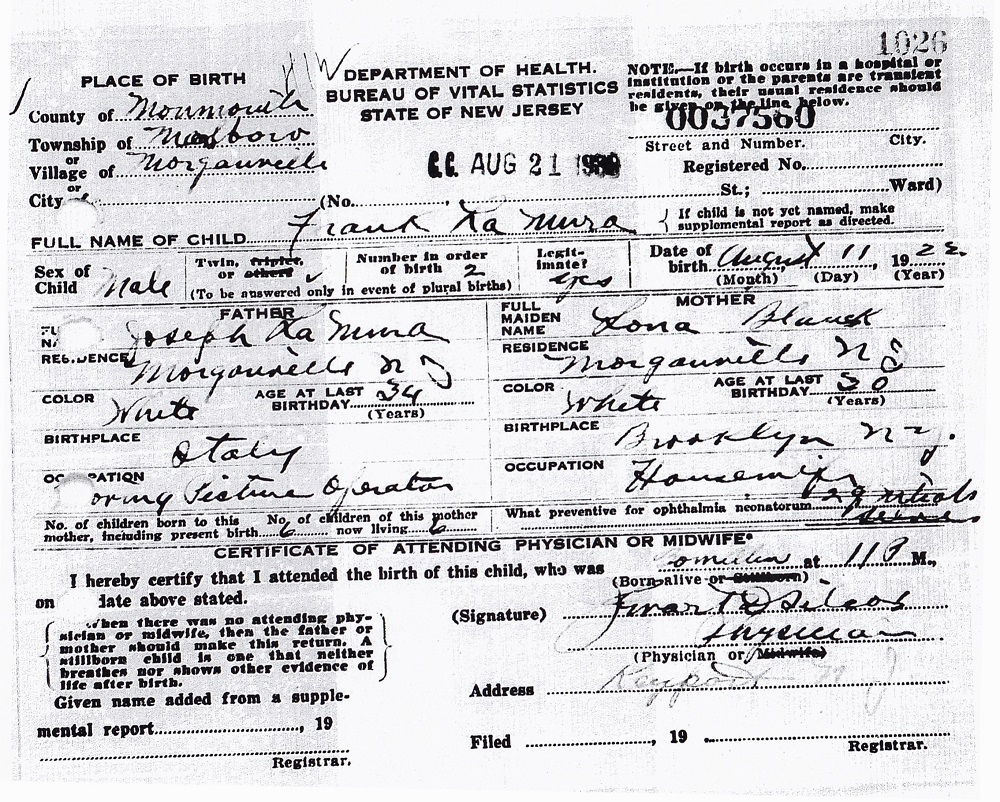 1026
PLACE OF BIRTH
County of Monmouth
Township of Marlboro
or
Village of Morganville
or
City
DEPARTMENT OF HEALTH.
BUREAU OF VITAL STATISTICS
STATE OF NEW JERSEY
AUG 21
(No.
NOTE.—If birth occurs in a hospital or
institution or the parents are transient
residents, their usual residence should
be given on the line below.
0037560
Street and Number. City.
Registered No.
St.; Ward)
FULL NAME OF CHILD Frank La Mura
If child is not yet named, make
supplomental report as directed.
Sex of
Child Male
Twin, triplet,
or others
Number in order
of birth 2
(To be answered only in event of plural births)
Legit-
imate? yes
Date of
birth August 11, 19
(Month) (Day) (Year)
FATHER
Joseph La Mura
RESIDENCE
Morganville N J
COLOR White
AGE AT LAST
BIRTHDAY 34
(Years)
BIRTHPLACE
Italy
OCCUPATION
oving Picture Operator
MOTHER
FULL
MAIDEN
NAME Rona
RESIDENCE
Morganville N J
COLOR White
AGE AT LAST
BIRTHDAY 30
(Years)
BIRTHPLACE
Brooklyn N Y.
OCCUPATION
Housewife
No. of children born to this
mother, including present birth 6
No. of children of this mother
now living 6
What preventive for ophthalmia neonatorum
CERTIFICATE OF ATTENDING PHYSICIAN OR MIDWIFE*
I hereby certify that I attended the birth of this child, who was at 11 P M.,
(Born alive or Stillborn)
on date above stated.
When there was no attending phy-
sician or midwife, then the father or
mother should make this return. A
stillborn child is one that neither
breathes nor shows other evidence of
life after birth.
Given name added from a supple-
mental report, 19
Registrar.
(Signature)
Physician
(Physician or Midwife)
Address Keyport N J
Filed , 19
Registrar.